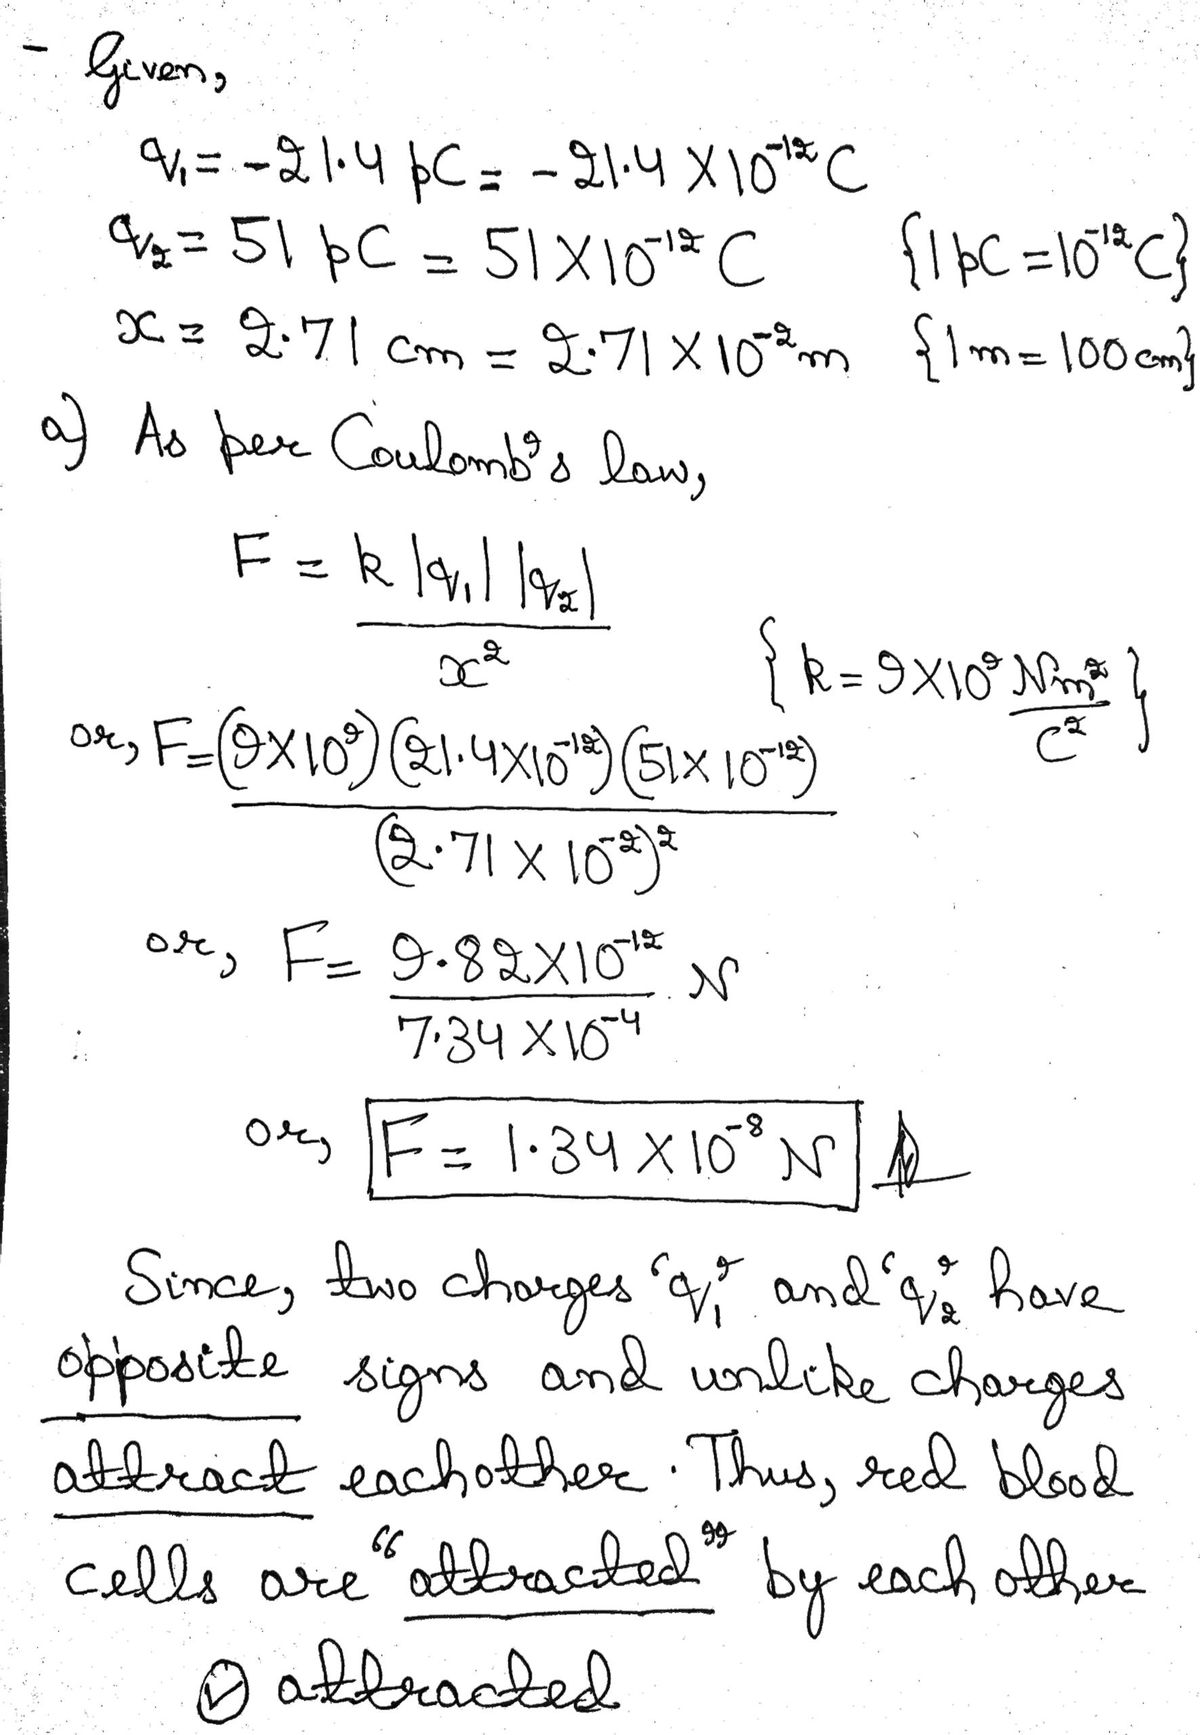 - Given,
q₁ = -21.4 pC = -21.4 X 10⁻¹² C
q₂ = 51 pC = 51 X 10⁻¹² C {1 pC = 10⁻¹² C}
x = 2.71 cm = 2.71 X 10⁻² m {1 m = 100 cm}
a) As per Coulomb's law,
F = k |q₁| |q₂|
x²
{k = 9 X 10⁹ Nm²
C² }
or, F = (9 X 10⁹) (21.4 X 10⁻¹²) (51 X 10⁻¹²)
(2.71 X 10⁻²)²
or, F = 9.82 X 10⁻¹² N
7.34 X 10⁻⁴
or, F = 1.34 X 10⁻⁸ N
Since, two charges 'q₁' and 'q₂' have
opposite signs and unlike charges
attract eachother. Thus, red blood
cells are "attracted" by each other
✓ attracted